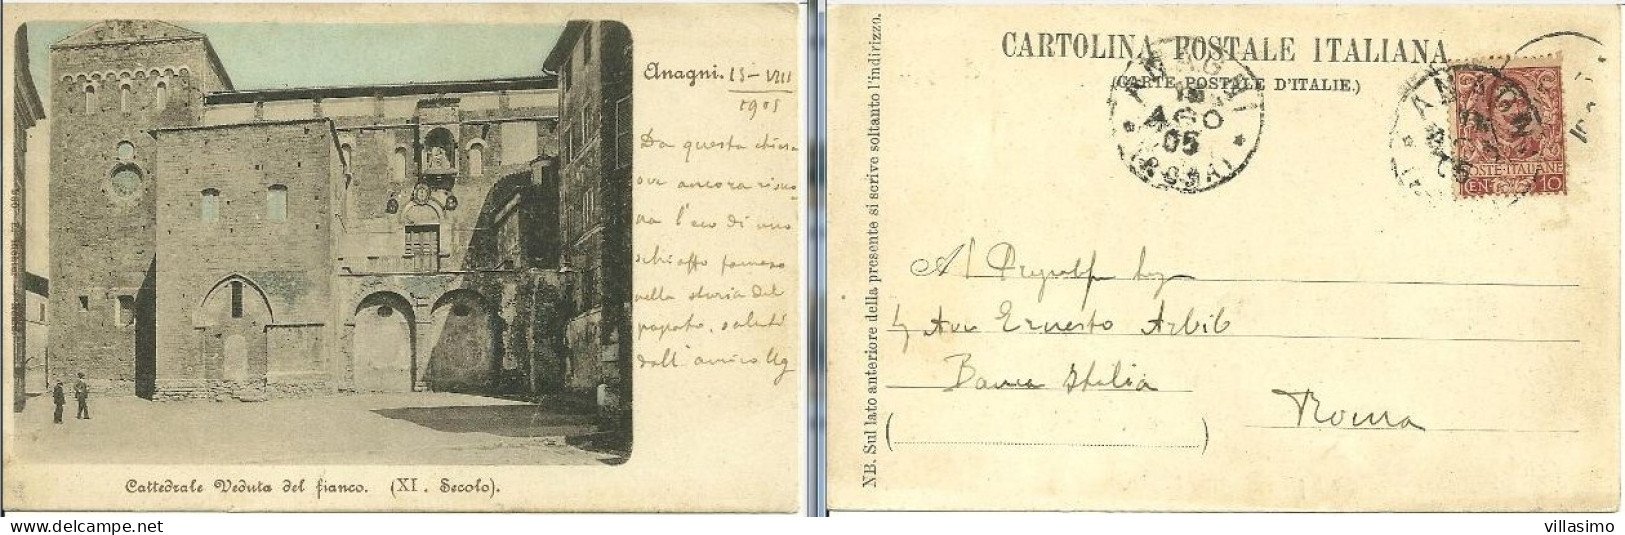 Anagni. 15-VIII
1905
Da questa chiesa
ove ancora risuo
na l'eco di uno
schiaffo famoso
nella storia del
papato, saluti
dall'amico
Cattedrale Veduta del fianco. (XI. Secolo).
NB. Sul lato anteriore della presente si scrive soltanto l'indirizzo.
CARTOLINA POSTALE ITALIANA
(CARTE POSTALE D'ITALIE.)
ANAGNI
15
AGO
05
(ROMA)
POSTE·ITALIANE
CENT 10
Al
Ernesto Arbib
Banca Italia
Roma
villasimo